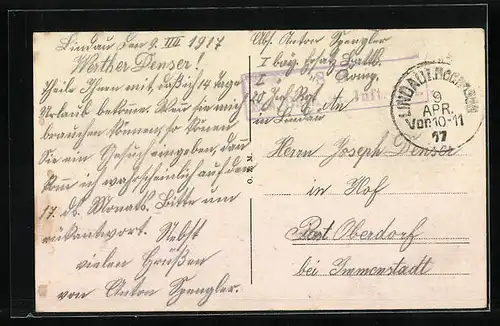 Lindau den 9. IIII 1917
Werther Denser!
Theile Ihnen mit, daß ich 14 Tage
Urlaub bekomme. Wen Sie mich
brauchen können, so können
Sie ein Gesuch eingeben, dan
kom ich wahrscheinlich auf den
17. ds. Monats. Bitte um
rükantwort. Nebst
vielen Grüßen
von Anton Spengler.
Abs. Anton Spengler
I bayr. Ersatz Batl.
I Komp.
20 Inf. Rgt.
in Lindau
An
LINDAU I. BODENSEE
9
APR.
Vor. 10-11
17
Herrn Joseph Denser
in Hof
Post Oberdorf
bei Immenstadt